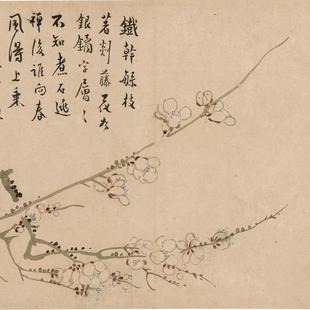 鐵幹緐枝
著剡藤花
銀字層〻
不知煮石逃
禪後誰向春
風得上乘